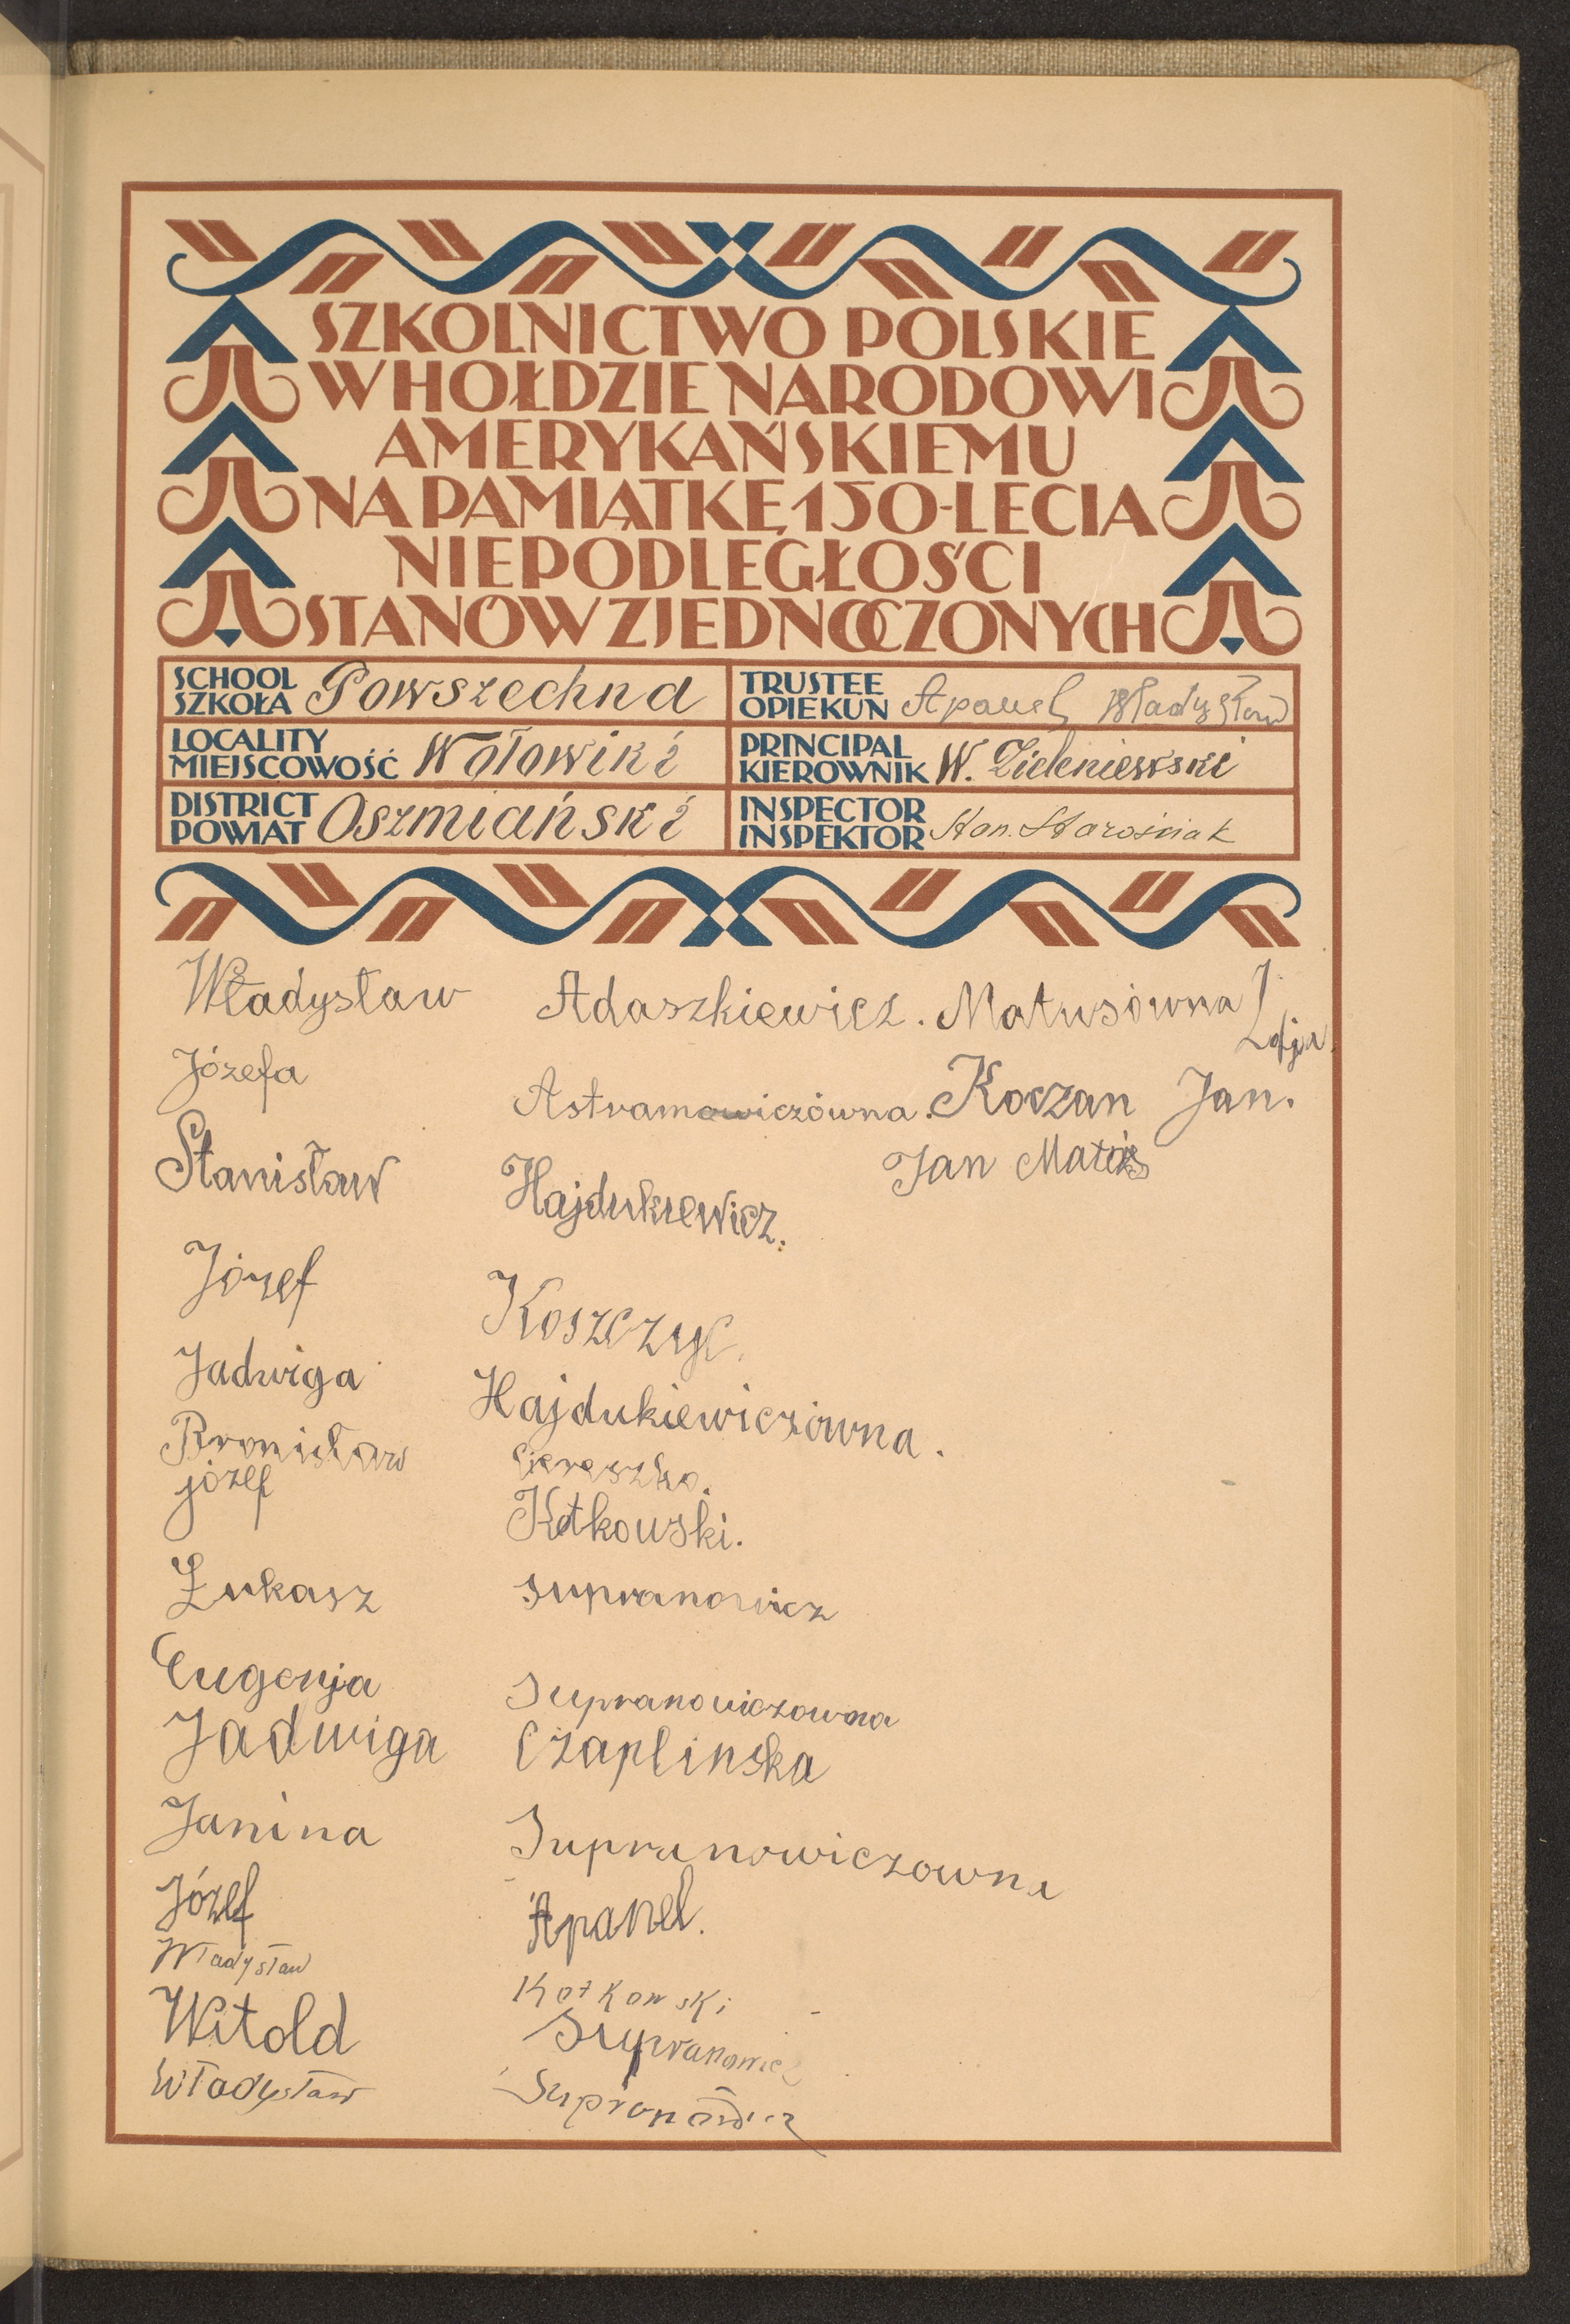 SZKOLNICTWO POLSKIE
W HOŁDZIE NARODOWI
AMERYKAŃSKIEMU
NA PAMIĄTKĘ 150-LECIA
NIEPODLEGŁOŚCI
STANÓW ZJEDNOCZONYCH
SCHOOL SZKOŁA Powszechna
TRUSTEE OPIEKUN Apanel Władysław
LOCALITY MIEJSCOWOŚĆ Wołowiki
PRINCIPAL KIEROWNIK W. Zieleniewski
DISTRICT POWIAT Oszmiański
INSPECTOR INSPEKTOR Stan. Starościak
Władysław Adaszkiewicz. Matusówna Zofja.
Józefa Astramowiczówna. Koczan Jan.
Stanisław Hajdukiewicz. Jan
Józef Koszczyc.
Jadwiga Hajdukiewiczówna.
Bronisław
józef Kotkowski.
Łukasz Supranowicz
Eugenja Supranowiczowna
Jadwiga Czaplinska
Janina Supranowiczowna
Józef Apanel.
Władysław Kotkowski
Witold Supranowicz
Władysław Supranowicz